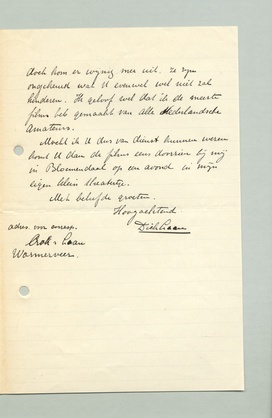 doch kom er weinig mee uit. Ze zijn
ongekuukt wat U evenwel wel niet zal
hinderen. Ik geloof wel dat ik de meeste
films heb gemaakt van alle Nederlandsche
Amateurs.
Mocht ik U dus van dienst kunnen wezen
komt U dan de films eens doorzien bij mij
in Bloemendaal op een avond in mijn
eigen klein theatertje.
Met beleefde groeten.
Hoogachtend
Dick Laan
adres voor corresp.
Crok & Laan
Wormerveer.